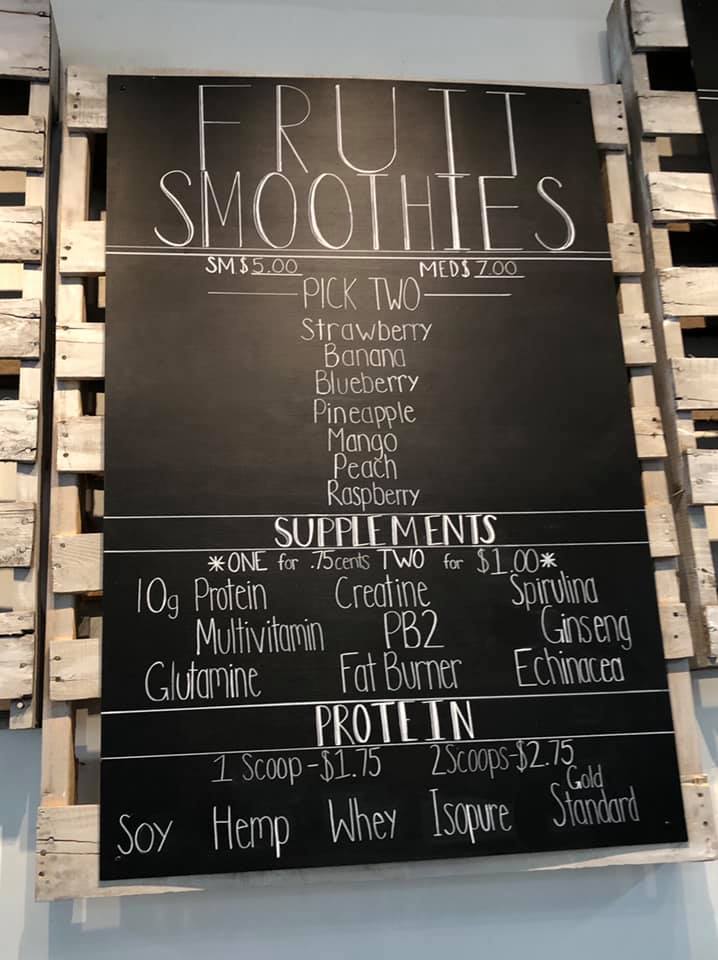 FRUIT
SMOOTHIES
SM $5.00 MED $ 7.00
PICK TWO
Strawberry
Banana
Blueberry
Pineapple
Mango
Peach
Raspberry
SUPPLEMENTS
*ONE for .75cents TWO for $1.00*
10g Protein Creatine Spirulina
Multivitamin PB2 Ginseng
Glutamine Fat Burner Echinacea
PROTEIN
1 Scoop-$1.75 2 Scoops-$2.75
Soy Hemp Whey Isopure Gold Standard